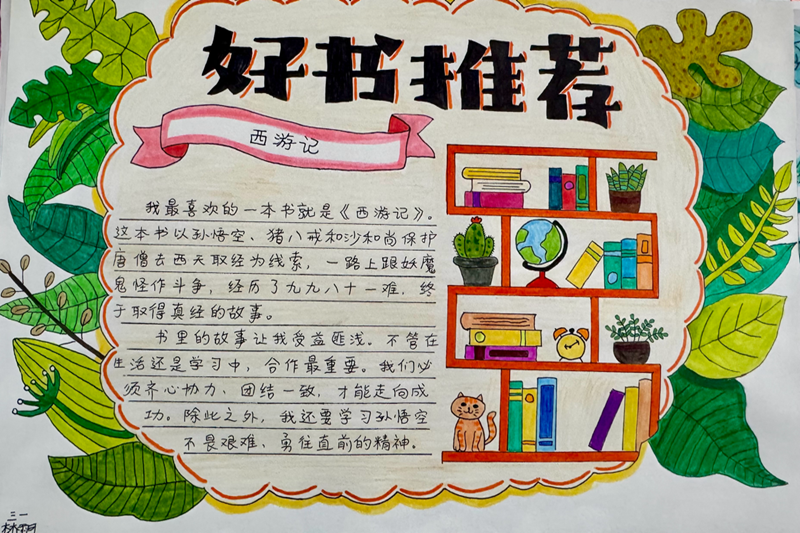 好书推荐
西游记
我最喜欢的一本书就是《西游记》。
这本书以孙悟空、猪八戒和沙和尚保护
唐僧去西天取经为线索，一路上跟妖魔
鬼怪作斗争，经历了九九八十一难，终
于取得真经的故事。
书里的故事让我受益匪浅。不管在
生活还是学习中，合作最重要。我们必
须齐心协力、团结一致，才能走向成
功。除此之外，我还要学习孙悟空
不畏艰难、勇往直前的精神。
三一